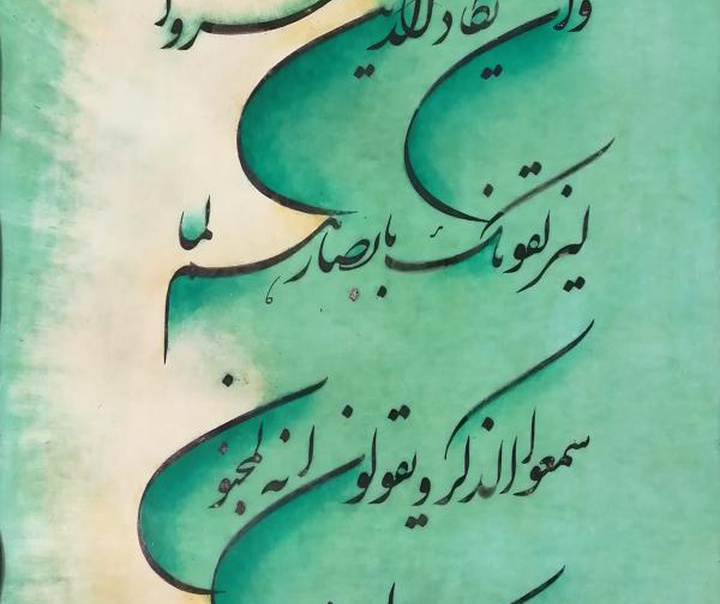 وان یکاد الذین کفروا
لیزلقونک بابصارهم لما
سمعوا الذکر و یقولون انه لمجنون